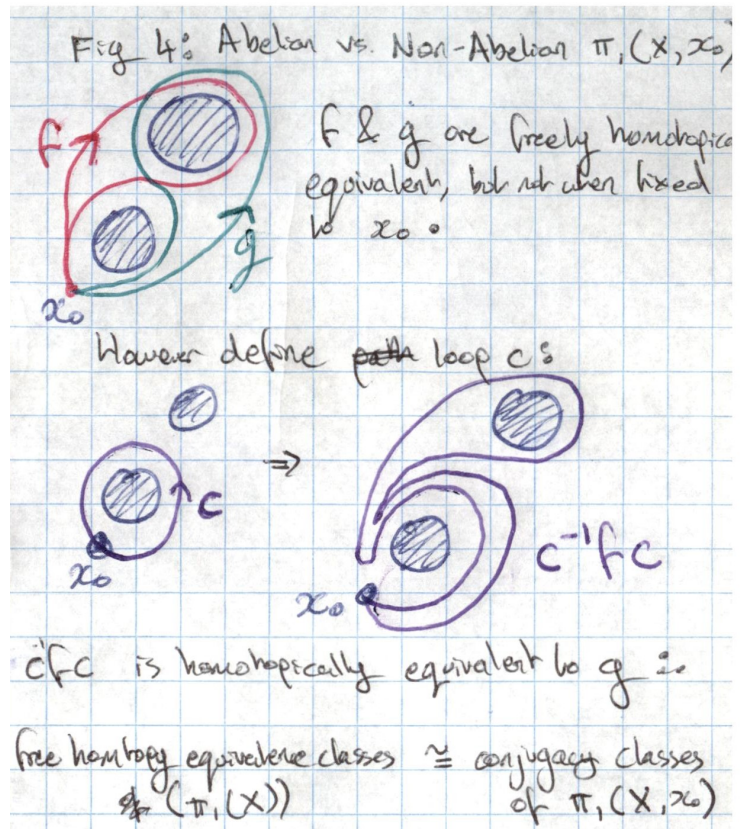 Fig 4: Abelian vs. Non-Abelian π₁(X, x₀)
f
f & g are freely homotopica
equivalent, but not when fixed
to x₀.
g
x₀
However define path loop c:
c
⇒
x₀
c⁻¹fc
x₀
c⁻¹fc is homotopically equivalent to g ∴
free homtopy equivalence classes ≅ conjugacy classes
(π₁(X)) of π₁(X, x₀)